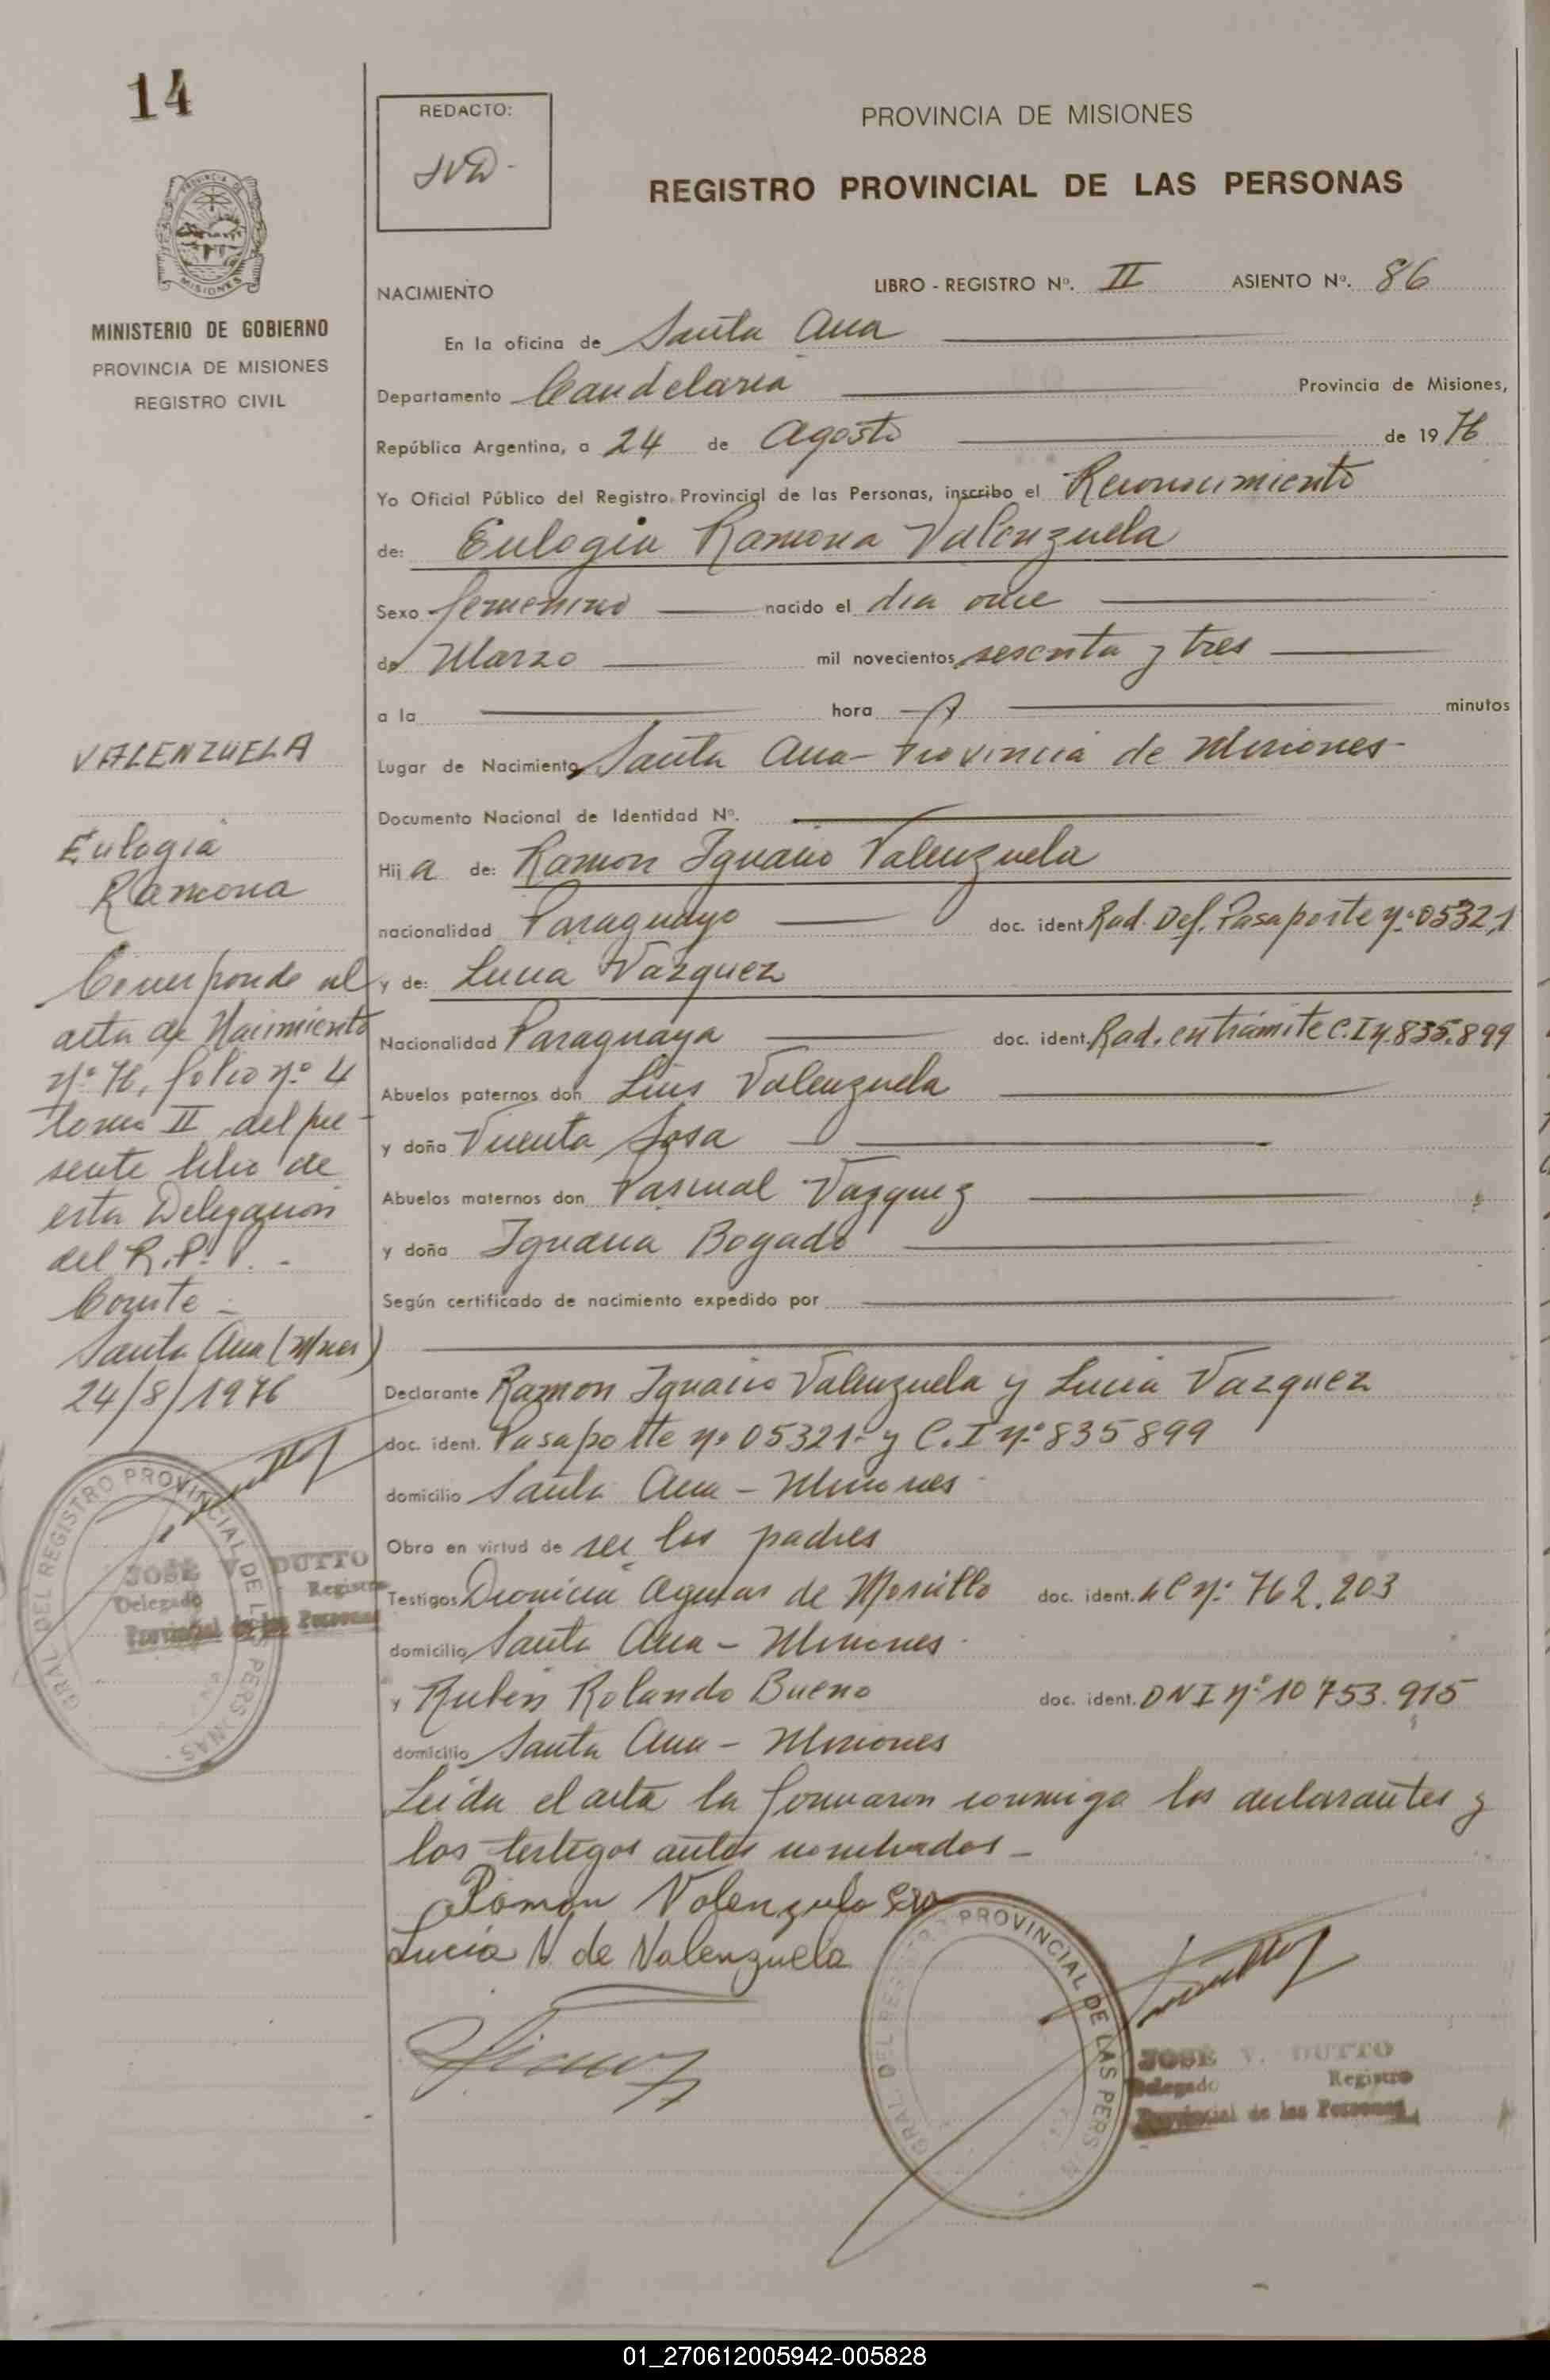 14
REDACTO:
JVD-
PROVINCIA DE MISIONES
REGISTRO PROVINCIAL DE LAS PERSONAS
MINISTERIO DE GOBIERNO
PROVINCIA DE MISIONES
REGISTRO CIVIL
NACIMIENTO
LIBRO - REGISTRO Nº. II ASIENTO Nº. 86
En la oficina de Santa Ana
Departamento Candelaria Provincia de Misiones,
República Argentina, a 24 de Agosto de 1976
Yo Oficial Público del Registro Provincial de las Personas, inscribo el Reconocimiento
de: Eulogia Ramona Valenzuela
Sexo femenino nacido el dia once
de Marzo mil novecientos sesenta y tres
a la hora y minutos
Lugar de Nacimiento Santa Ana - Provincia de Misiones -
Documento Nacional de Identidad Nº.
Hij a de: Ramon Ignacio Valenzuela
nacionalidad Paraguayo doc. ident. Rad. Def. Pasaporte nº 05321
y de: Lucia Vazquez
Nacionalidad Paraguaya doc. ident. Rad. en trámite C.I nº 835.899
Abuelos paternos don Luis Valenzuela
y doña Vicenta Sosa
Abuelos maternos don Pascual Vazquez
y doña Ignacia Bogado
Según certificado de nacimiento expedido por
Declarante Ramon Ignacio Valenzuela y Lucia Vazquez
doc. ident. Pasaporte nº 05321- y C.I nº 835899
domicilio Santa Ana - Misiones -
Obra en virtud de ser los padres
Testigos Dionicia de doc. ident. LC nº 762.203
domicilio Santa Ana - Misiones -
y Ruben Rolando Bueno doc. ident. DNI nº 10753.915
domicilio Santa Ana - Misiones
Leida el acta la firmaron conmigo los declarantes y
los testigos antes nombrados -
Ramon Valenzuela
Lucia V. de Valenzuela
VALENZUELA
Eulogia
Ramona
Corresponde al
acta de Nacimiento
nº 76, folio nº 4
tomo II del pre-
sente libro de
esta Delegación
del R.P.
Conste -
Santa Ana (Mnes)
24/8/1976
GRAL DEL REGISTRO PROVINCIAL DE LAS PERSONAS
JOSE V. DUTTO
Delegado Registro
Provincial de las Personas
GRAL DEL REGISTRO PROVINCIAL DE LAS PERS
JOSE V. DUTTO
Delegado Registro
Provincial de las Personas
01_270612005942-005828